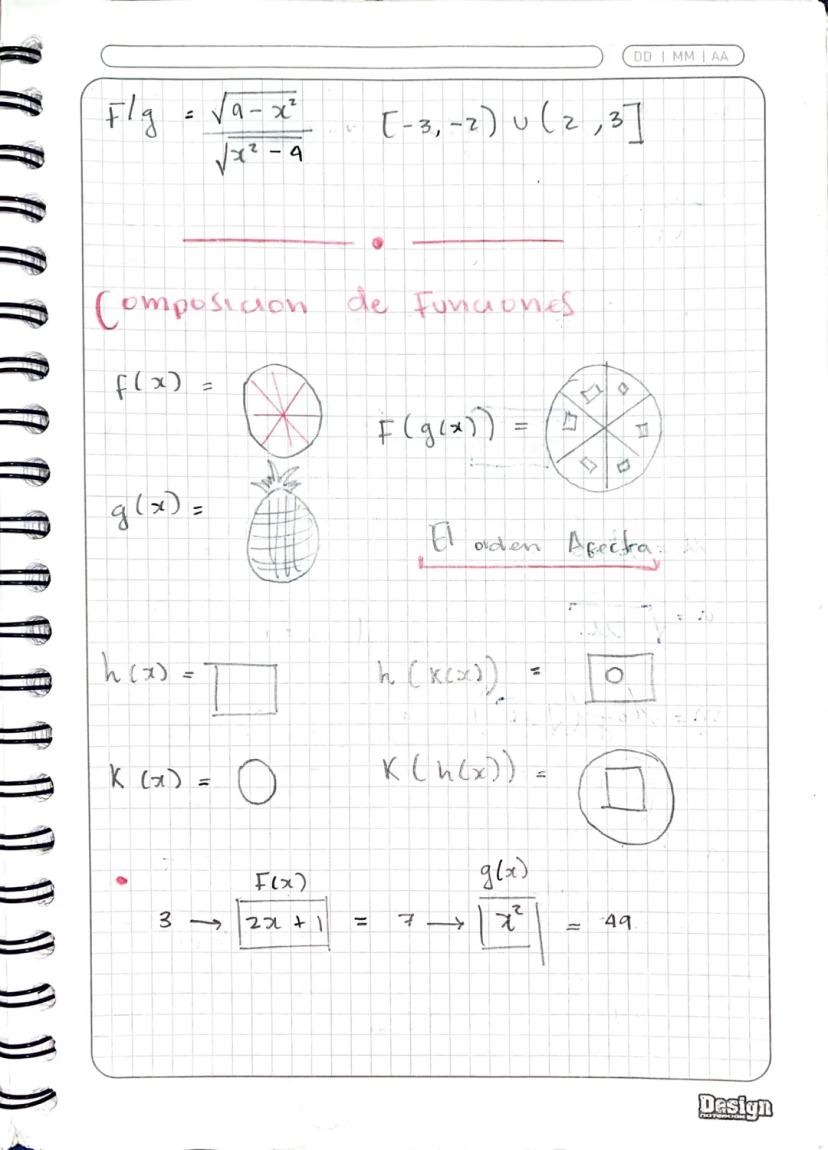 DD | MM | AA
F/g = √9-x² / √x²-4 [-3,-2) ∪ (2,3]
Composicion de Funciones
f(x) =
F(g(x)) =
g(x) =
El orden Afecta.
h(x) =
h(K(x)) =
K(x) =
K(h(x)) =
F(x) g(x)
3 → 2x + 1 = 7 → x² = 49
Design
NOTEBOOK